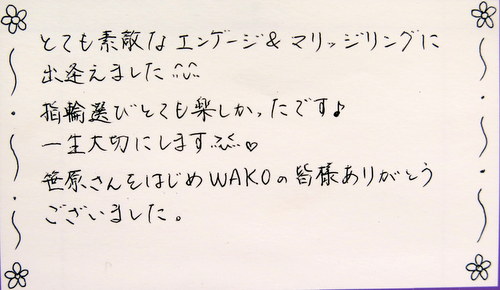 とても素敵なエンゲージ&マリッジリングに
出逢えました^^
指輪選びとても楽しかったです♪
一生大切にします^^♡
笹原さんをはじめWAKOの皆様ありがとう
ございました。